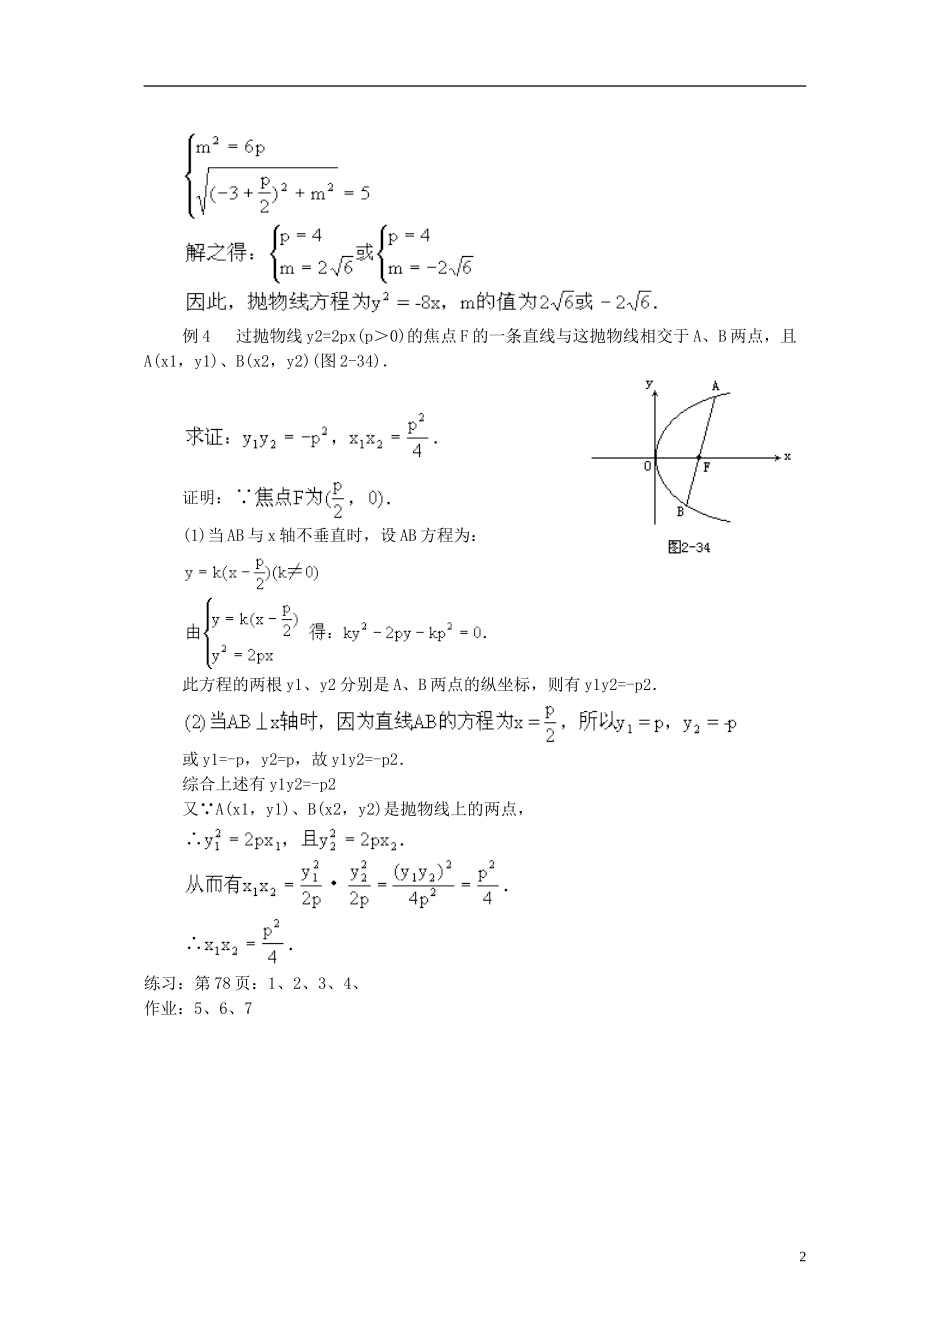 {m² = 6p
√((-3 + p/2)² + m²) = 5
解之得：{p = 4 m = 2√6 或 {p = 4 m = -2√6
因此，抛物线方程为y² = -8x，m的值为2√6或 - 2√6．
例 4 过抛物线 y2=2px(p＞0)的焦点 F 的一条直线与这抛物线相交于 A、B 两点，且
A(x1，y1)、B(x2，y2)(图 2-34)．
y
A
O
F
x
B
图2-34
求证：y₁y₂ = -p²，x₁x₂ = p²/4．
证明：∵焦点F为(p/2，0)．
(1)当 AB 与 x 轴不垂直时，设 AB 方程为：
y = k(x - p/2)(k≠0)
由{y = k(x - p/2) y² = 2px 得：ky² - 2py - kp² = 0．
此方程的两根 y1、y2 分别是 A、B 两点的纵坐标，则有 y1y2=-p2．
(2)当AB⊥x轴时，因为直线AB的方程为x = p/2，所以y₁ = p，y₂ = -p
或 y1=-p，y2=p，故 y1y2=-p2．
综合上述有 y1y2=-p2
又∵A(x1，y1)、B(x2，y2)是抛物线上的两点，
∴y₁² = 2px₁，且y₂² = 2px₂．
从而有x₁x₂ = y₁²/2p · y₂²/2p = (y₁y₂)²/4p² = p²/4．
∴x₁x₂ = p²/4．
练习：第 78 页：1、2、3、4、
作业：5、6、7
2